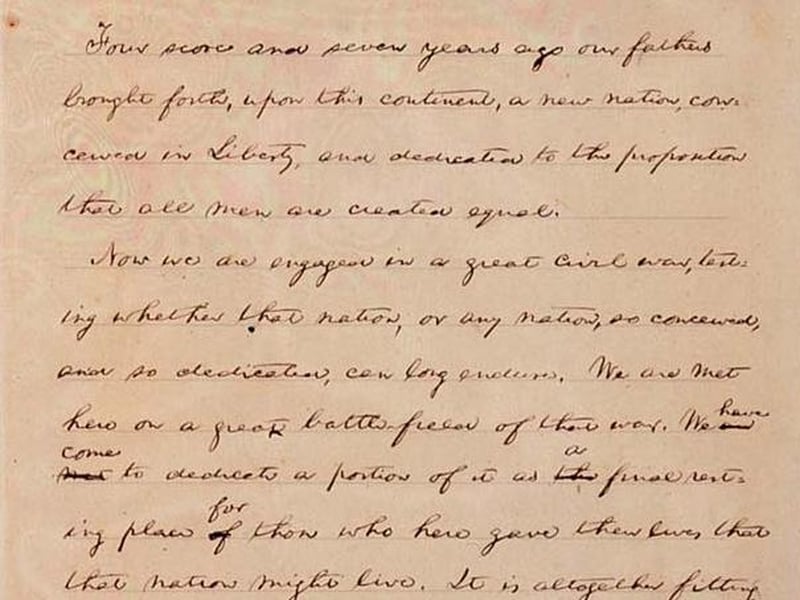 Four score and seven years ago our fathers
brought forth, upon this continent, a new nation, con-
ceived in Liberty, and dedicated to the proposition
that all men are created equal.
Now we are engaged in a great civil war, test-
ing whether that nation, or any nation, so conceived,
and so dedicated, can long endure. We are met
here on a great battle-field of that war. We are have
come
met to dedicate a portion of it as the a final rest-
ing place of for those who here gave their lives that
that nation might live. It is altogether fitting